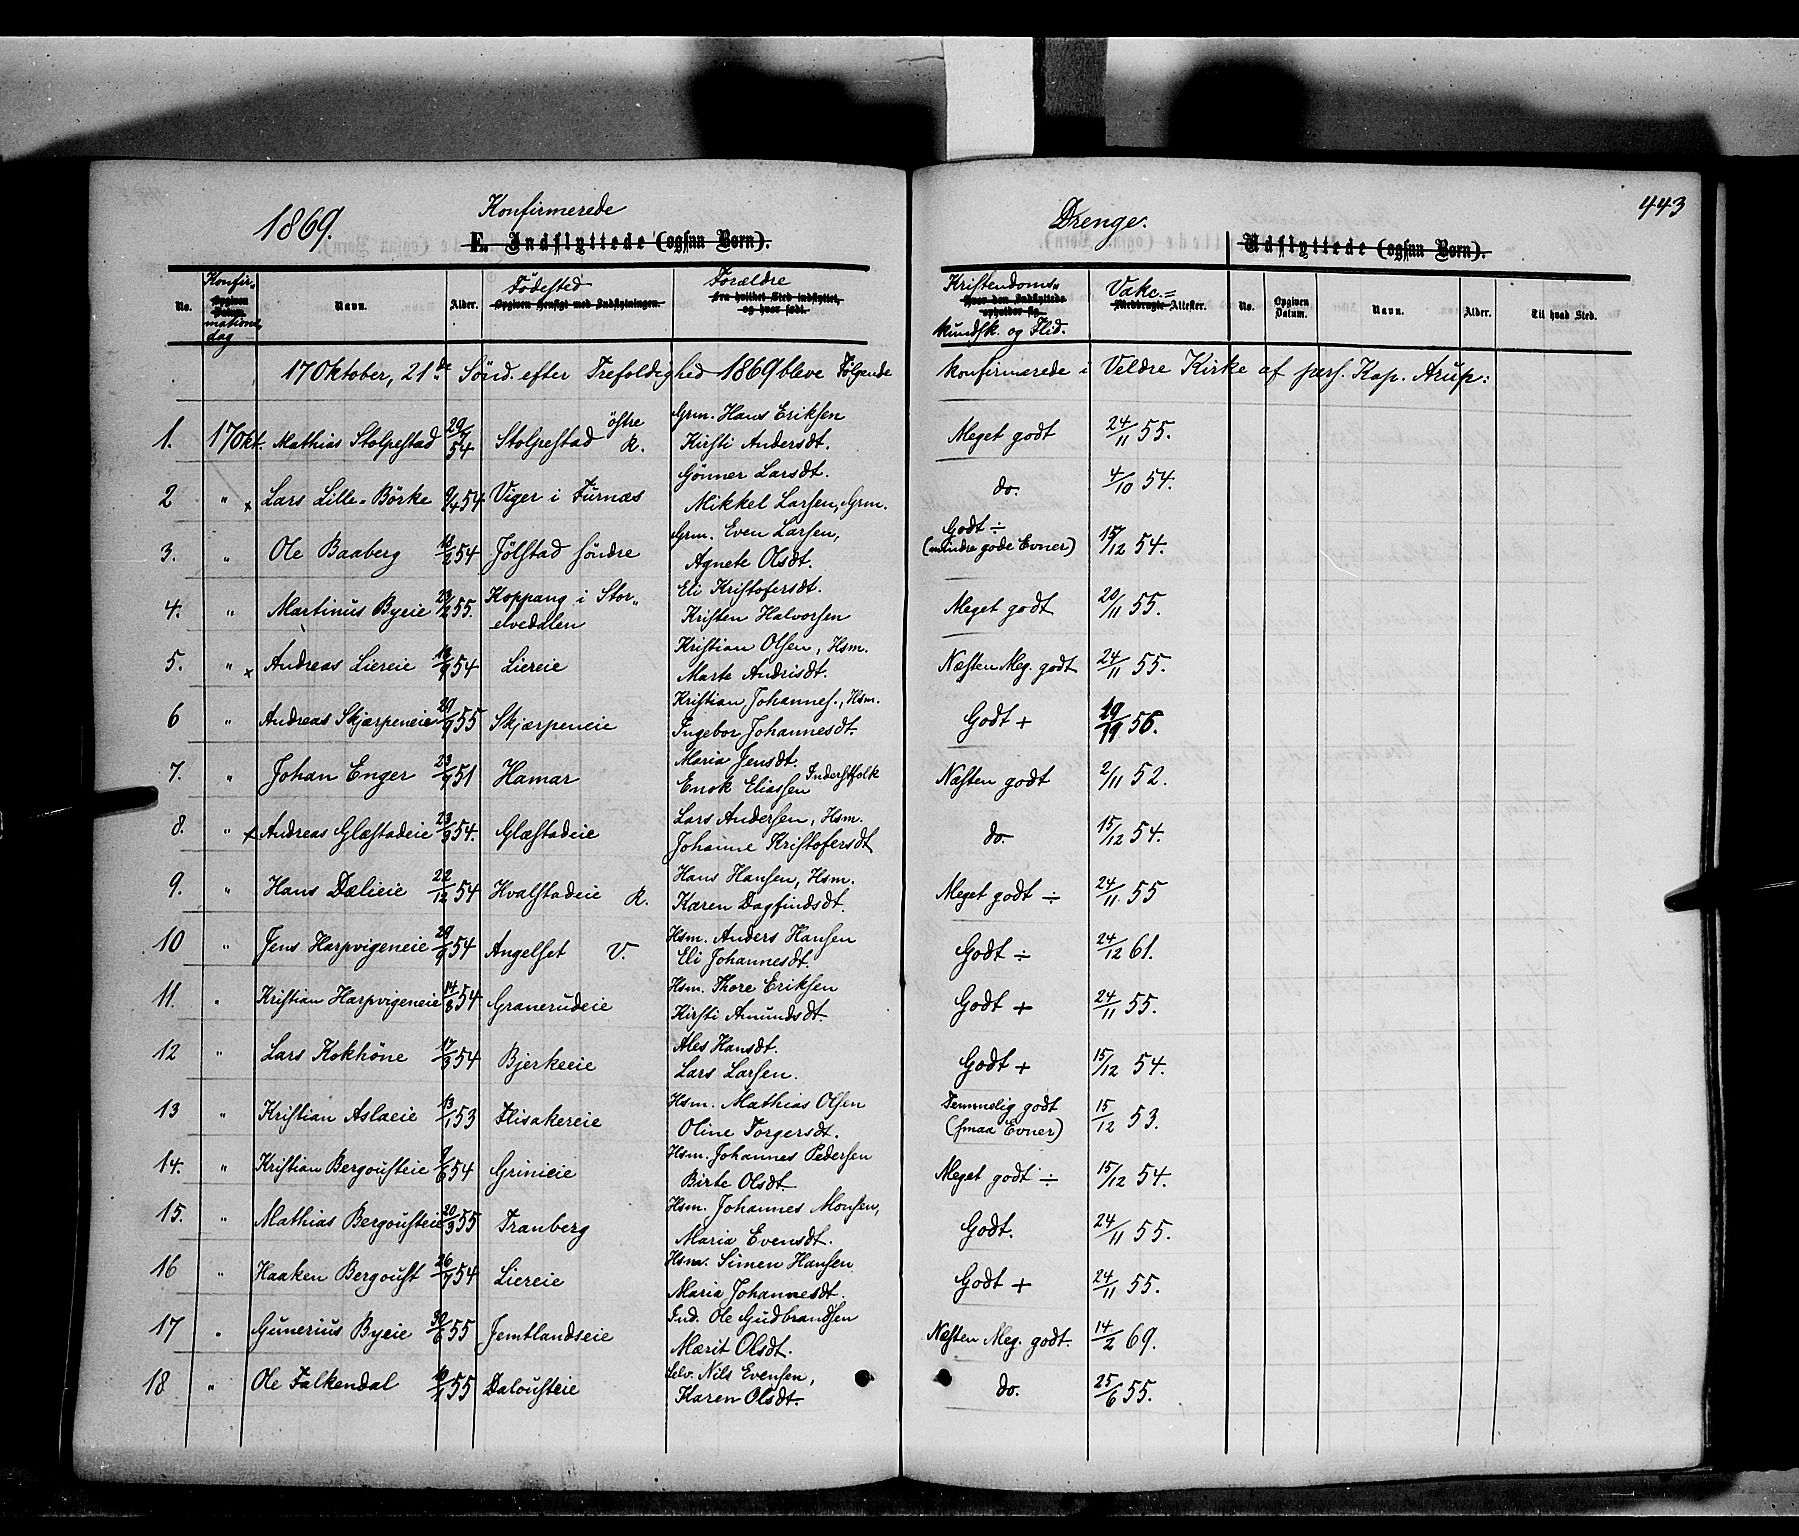 443
1869.
Konfirmerede
Drenge.
E. Indflyttede (ogsaa Børn).
Udflyttede (ogsaa Børn).
No.
Konfir-
Opgiven Datum.
mations
dag
Navn.
Alder.
Födested
Opgiven Hensigt med Indflytningen.
Forældre
Fra hvilket Sted indflyttet, og hvor født.
Kristendoms-
Hvor den Indflyttede opholder sig.
kundsk. og Flid.
Vakc.=
Medbragte Attester.
No.
Opgiven Datum.
Navn.
Alder.
Til hvad Sted.
17 Oktober, 21de Sönd. efter Trefoldighed 1869 bleve Følgende konfirmerede i Veldre Kirke af pers. Kap. Arup:
1. 17 Okt. Mathias Stolpestad 54 Stolpestad östre R. Grm. Hans Eriksen Kirsti Andersdt. Meget godt 24/11 55.
2 " x Lars Lille-Börke 9/4 54 Viger i Furnæs Gönner Larsdt. Mikkel Larsen, Grm. do. 4/10 54.
3. " Ole Baaberg 54 Jölstad söndre Grm. Even Larsen, Agnete Olsdt. Godt ÷ (mindre gode Evner) 15/12 54.
4. " Martinus Byeie 55. Koppang i Stor-elvedalen Eli Kristofersdt. Kristen Halvorsen Meget godt 20/11 55.
5. " x Andreas Liereie 54 Liereie Kristian Olsen, Hsm. Marte Andrisdt. Næsten Meg. godt 24/11 55.
6 " Andreas Skjærpeneie 55 Skjærpeneie Kristian Johannes., Hsm. Ingebor Johannesdt. Godt + 56.
7. " Johan Enger 51 Hamar Maria Jensdt. Enok Eliassen Inderstfolk Næsten godt 2/11 52.
8. " x Andreas Glæstadeie 54. Glæstadeie Lars Andersen, Hsm. Johanne Kristofersdt do. 15/12 54.
9. " Hans Dælieie 22/12 54 Hvalstadeie R. Hans Hansen, Hsm. Karen Dagfindsdt. Meget godt ÷ 24/11 55
10 " Jens Harpvigeneie 54 Angelset V. Hsm. Anders Hansen Eli Johannesdt. Godt ÷ 24/12 61.
11. " Kristian Harpvigeneie 14/8 54 Granerudeie Hsm. Thore Eriksen Kirsti Amundsdt. Godt + 24/11 55.
12 " Lars Kokhöne 17/3 54 Bjerkeeie Ales Hansdt. Lars Larsen. Godt + 15/12 54.
13 " Kristian Aslaeie 13/1 53 Flisakereie Hsm. Mathias Olsen Oline Torgersdt. Temmelig godt (smaa Evner) 15/12 53.
14. " Kristian Bergousteie 54 Grinieie Hsm. Johannes Pedersen Birte Olsdt. Meget godt ÷ 15/12 54.
15. " Mathias Bergousteie 20/3 55 Tranberg Hsm. Johannes Monsen, Maria Evensdt. Godt. 24/11 55.
16 " Haaken Bergoust 54 Liereie Hsm. Simen Hansen Maria Johannesdt. Godt + 24/11 55.
17 " Gunerius Byeie 30/6 55 Jemtlandseie Ind. Ole Gudbrandsen Marit Olsdt. Næsten Meg. godt. 14/2 69.
18 " Ole Falkendal 55 Dalousteie Selv. Nils Evensen, Karen Olsdt. do. 25/6 55.